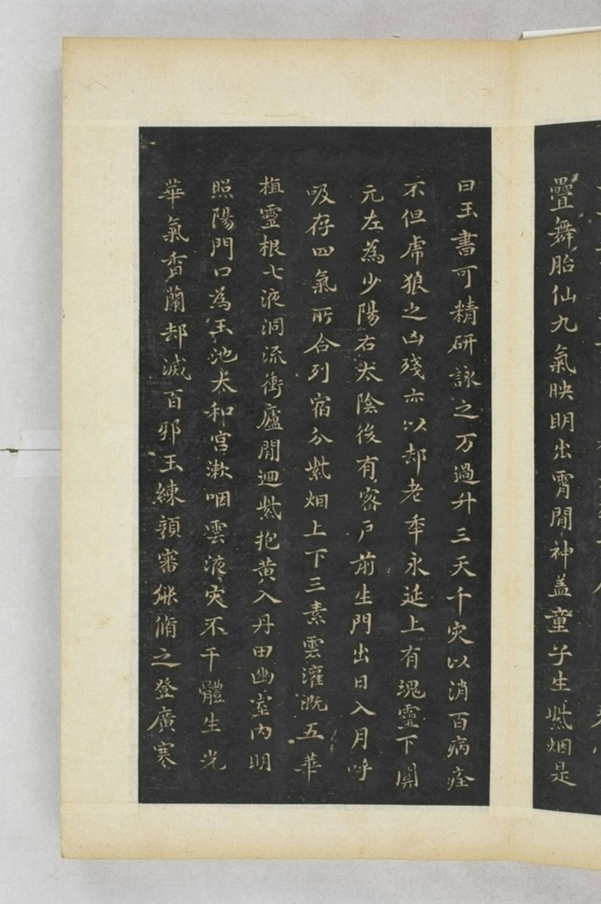 疊舞胎仙九氣映明出霄間神盖童子生紫烟是
曰玉書可精研詠之万過升三天千灾以消百病痊
不但虎狼之凶殘亦以却老年永延上有魂靈下關
元左為少陽右太陰後有密戶前生門出日入月呼
吸存四氣所合列宿分紫烟上下三素雲灌溉五華
植靈根七液洞流衝廬間迴紫抱黃入丹田幽室內明
照陽門口為玉池太和宮漱咽雲液灾不干體生光
華氣香蘭却滅百邪玉練顏審能脩之登廣寒